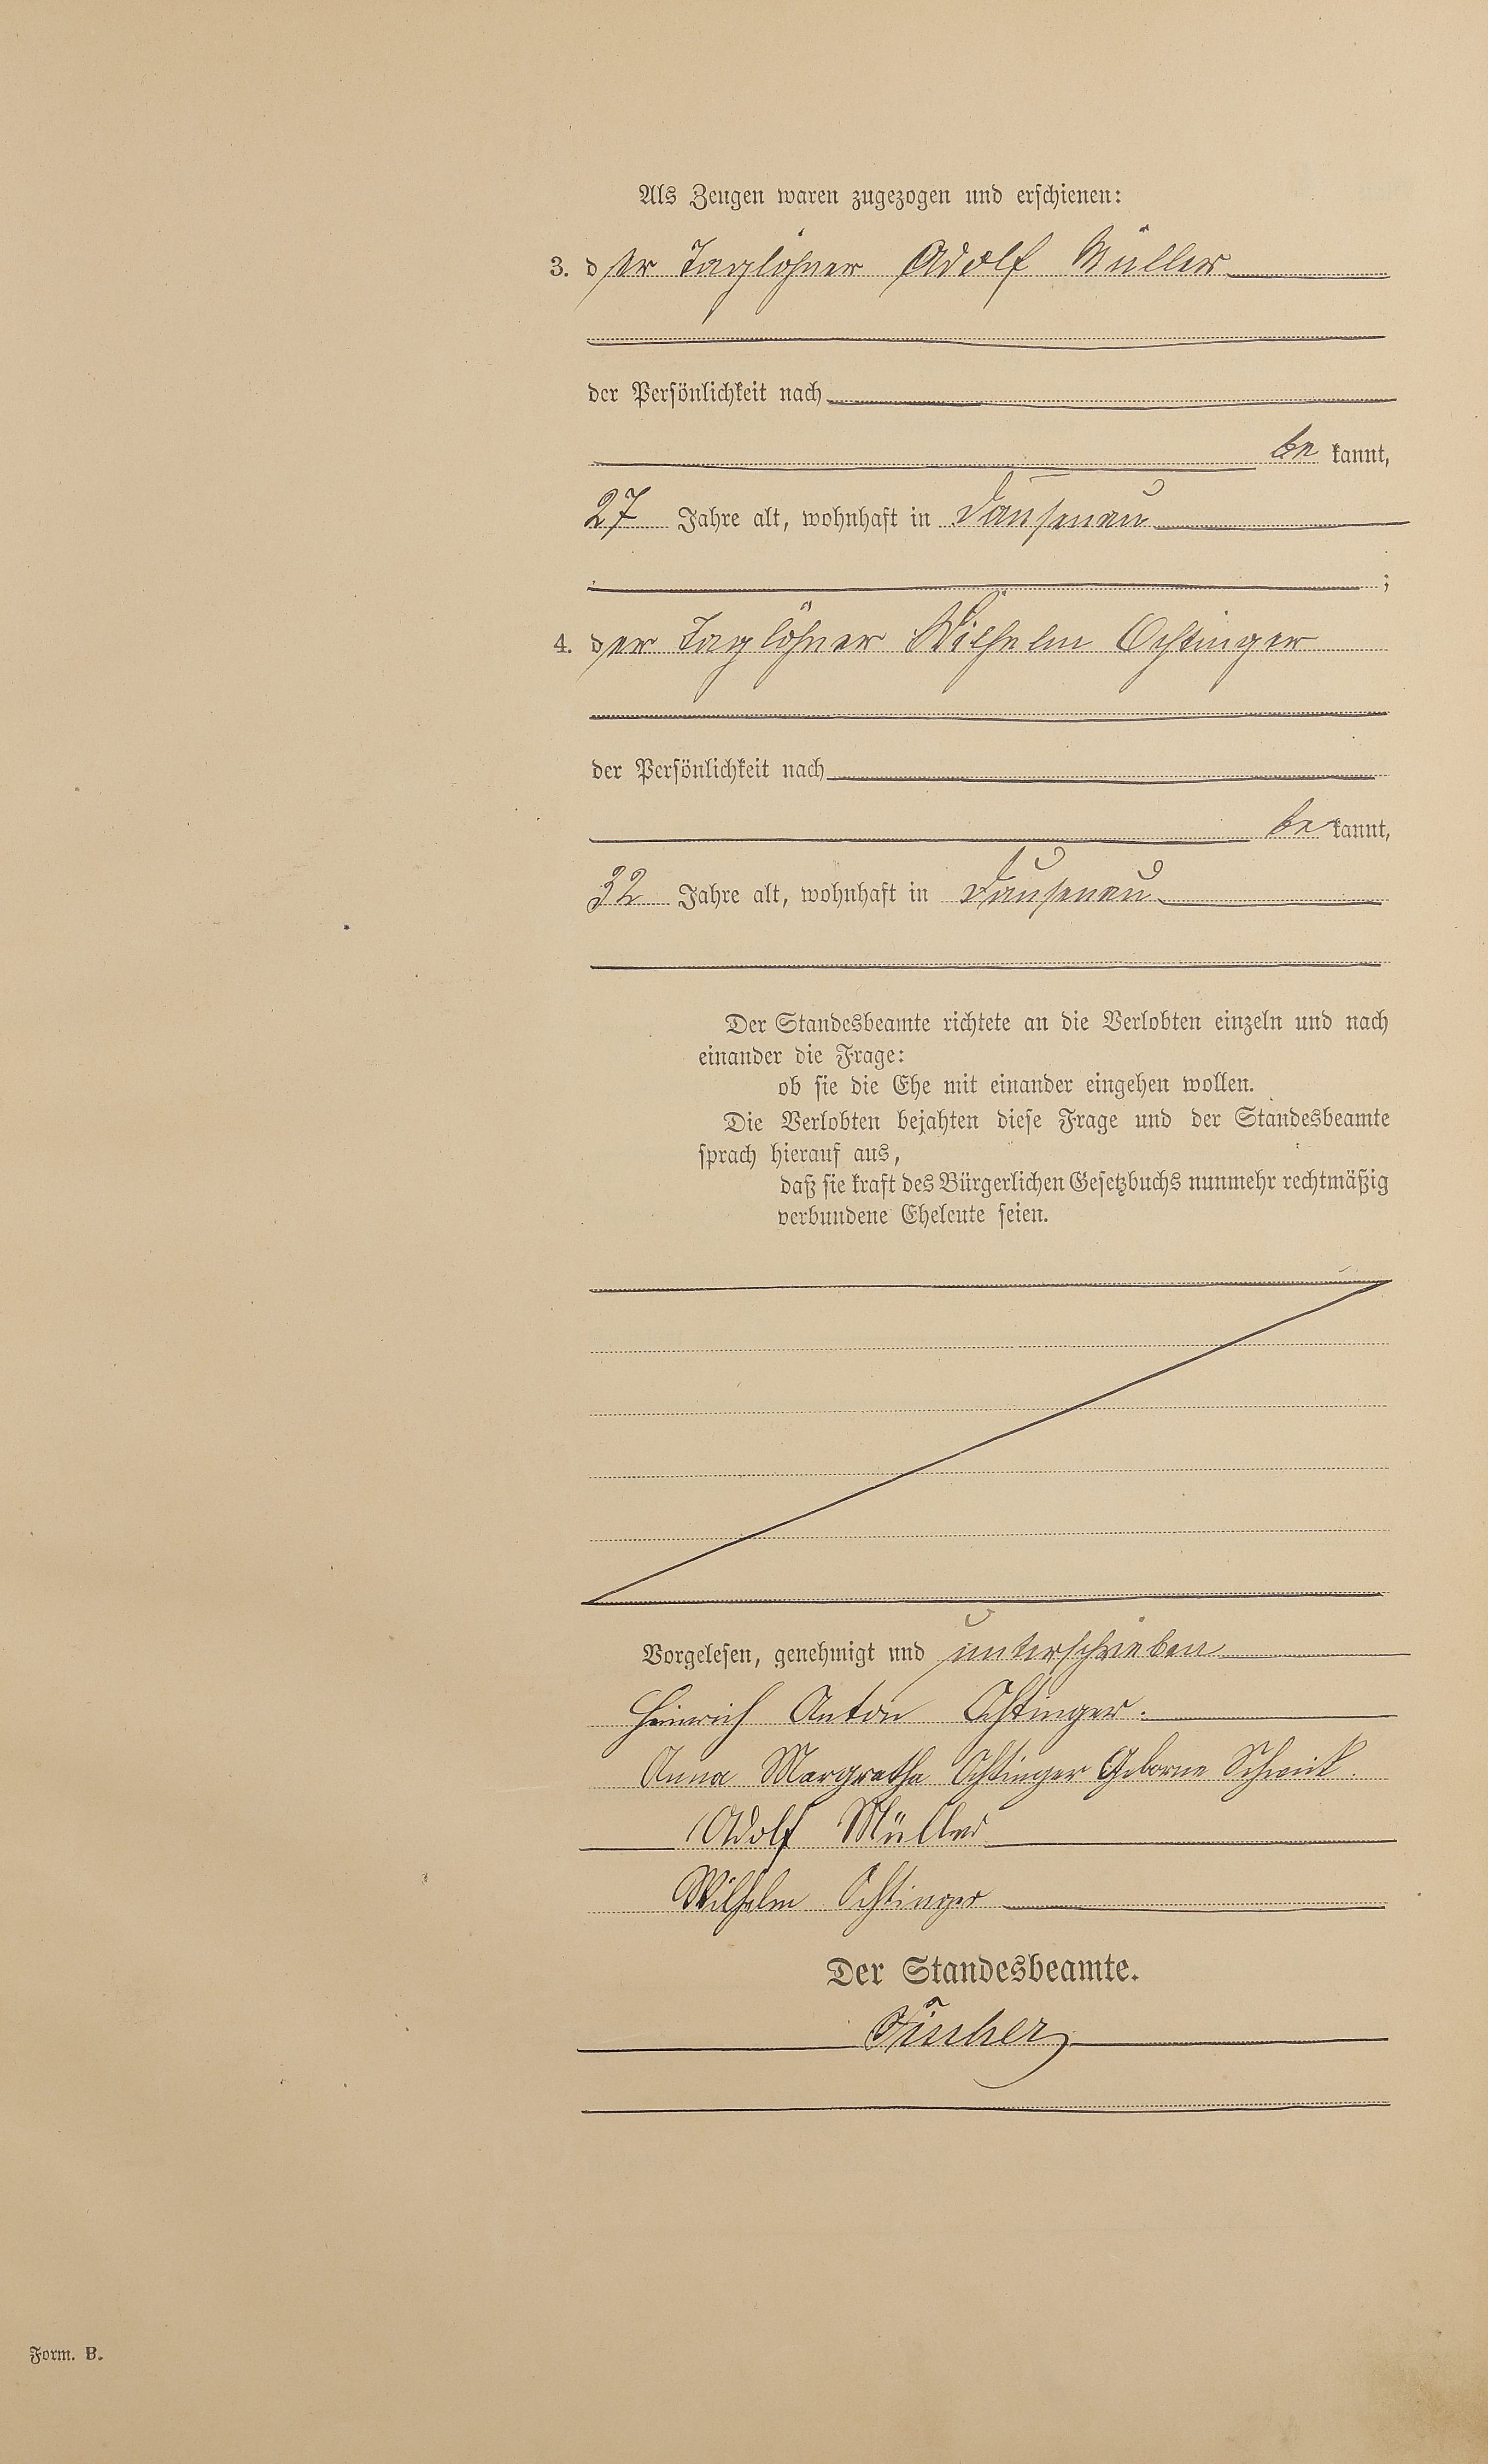 Als Zeugen waren zugezogen und erschienen:
3. der Taglöhner Adolf Müller
der Persönlichkeit nach
be kannt,
27 Jahre alt, wohnhaft in Dausenau
;
4. der Taglöhner Wilhelm Ochtinger
der Persönlichkeit nach
be kannt,
32 Jahre alt, wohnhaft in Dausenau
Der Standesbeamte richtete an die Verlobten einzeln und nach
einander die Frage:
ob sie die Ehe mit einander eingehen wollen.
Die Verlobten bejahten diese Frage und der Standesbeamte
sprach hierauf aus,
daß sie kraft des Bürgerlichen Gesetzbuchs nunmehr rechtmäßig
verbundene Eheleute seien.
Vorgelesen, genehmigt und unterschrieben
Heinrich Anton Ochtinger.
Anna Margretha Ochtinger Geborne
Adolf Müller
Wilhelm Ochtinger
Der Standesbeamte.
Form. B.